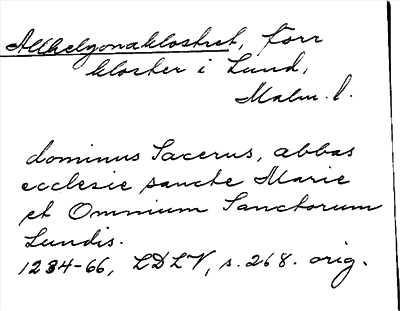 Allhelgonaklostret, förr
kloster i Lund,
Malm. l.
dominus Sacerus, abbas
ecclesie sancte Marie
et Omnium Sanctorum
Lundis.
1234-66, LDLV, s. 268. orig.